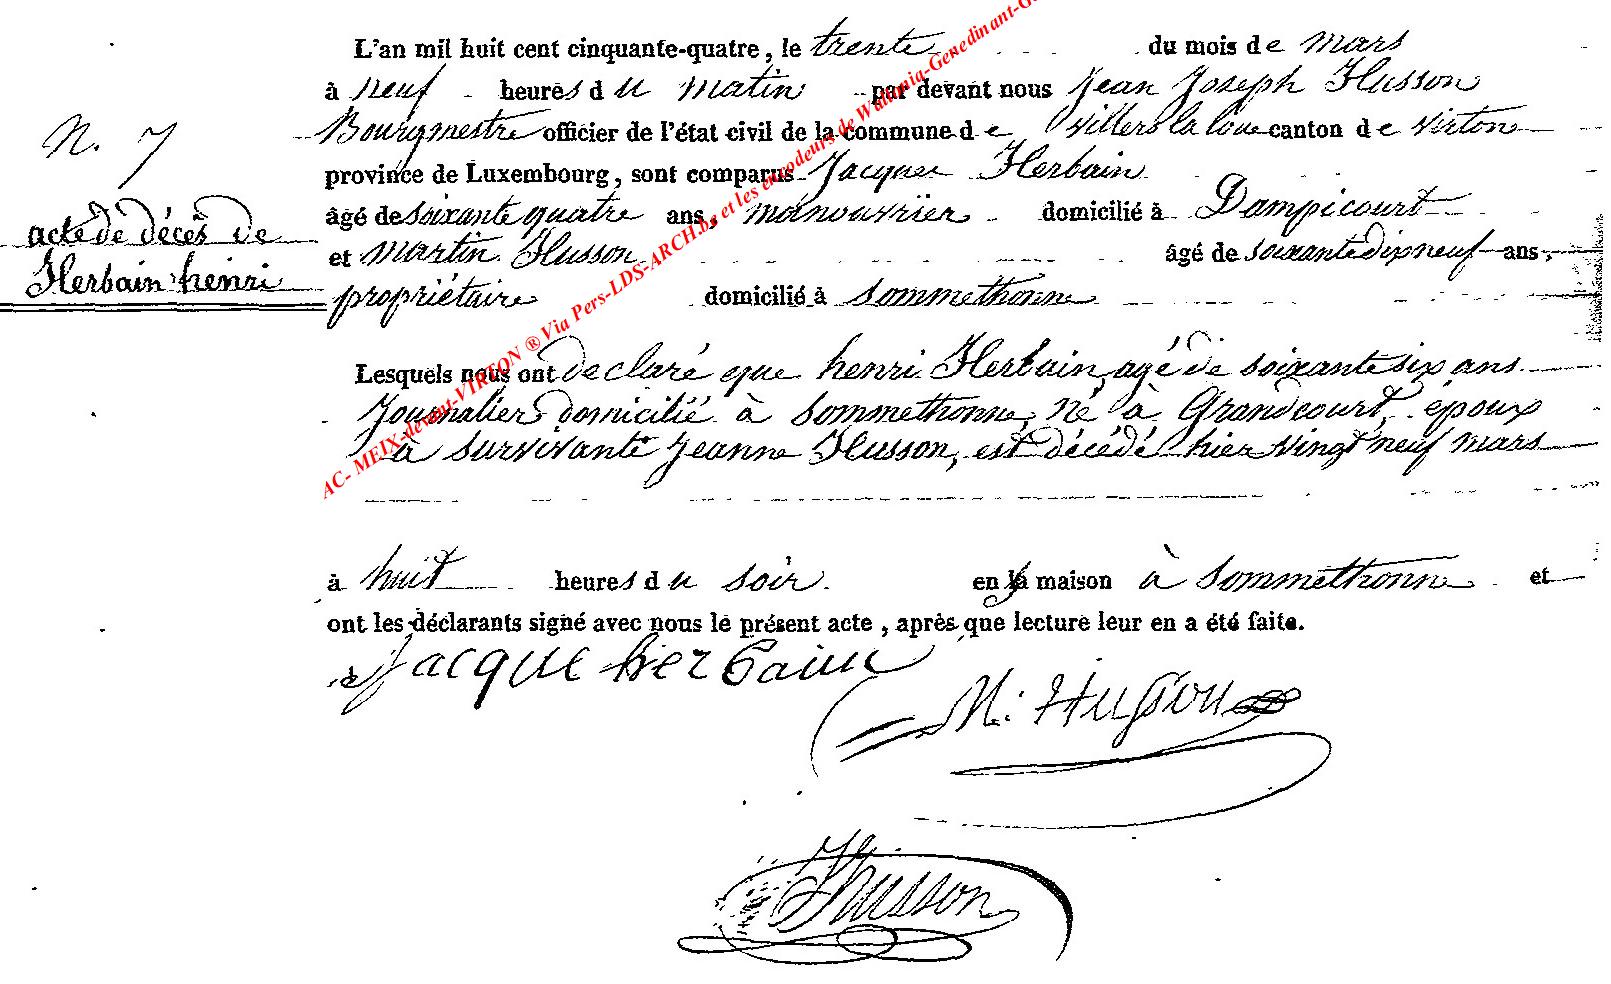 L'an mil huit cent cinquante-quatre, le trente du mois de mars
à neuf heures du matin par devant nous Jean Joseph Husson
Bourgmestre officier de l'état civil de la commune de Villers la loue canton de Virton
N. 7
province de Luxembourg, sont comparus Jacques Herbain
âgé de soixante quatre ans, manouvrier domicilié à Dampicourt
acte de décès de
et Martin Husson âgé de soixante dix neuf ans,
Herbain henri
propriétaire domicilié à Sommethonne
Lesquels nous ont declaré que henri Herbain, agé de soixante six ans
Journalier domicilié à Sommethonne, né à Grandcourt, époux
à survivante Jeanne Husson, est décédé hier vingt neuf mars
à huit heures du soir en sa maison à Sommethonne et
ont les déclarants signé avec nous le présent acte, après que lecture leur en a été faite.
Jacque herbain
M: Husson
Husson
AC- MEIX-devant-VIRTON ® Via Pers-LDS-ARCH.be et les encodeurs de Wallonia-Genedinant-G